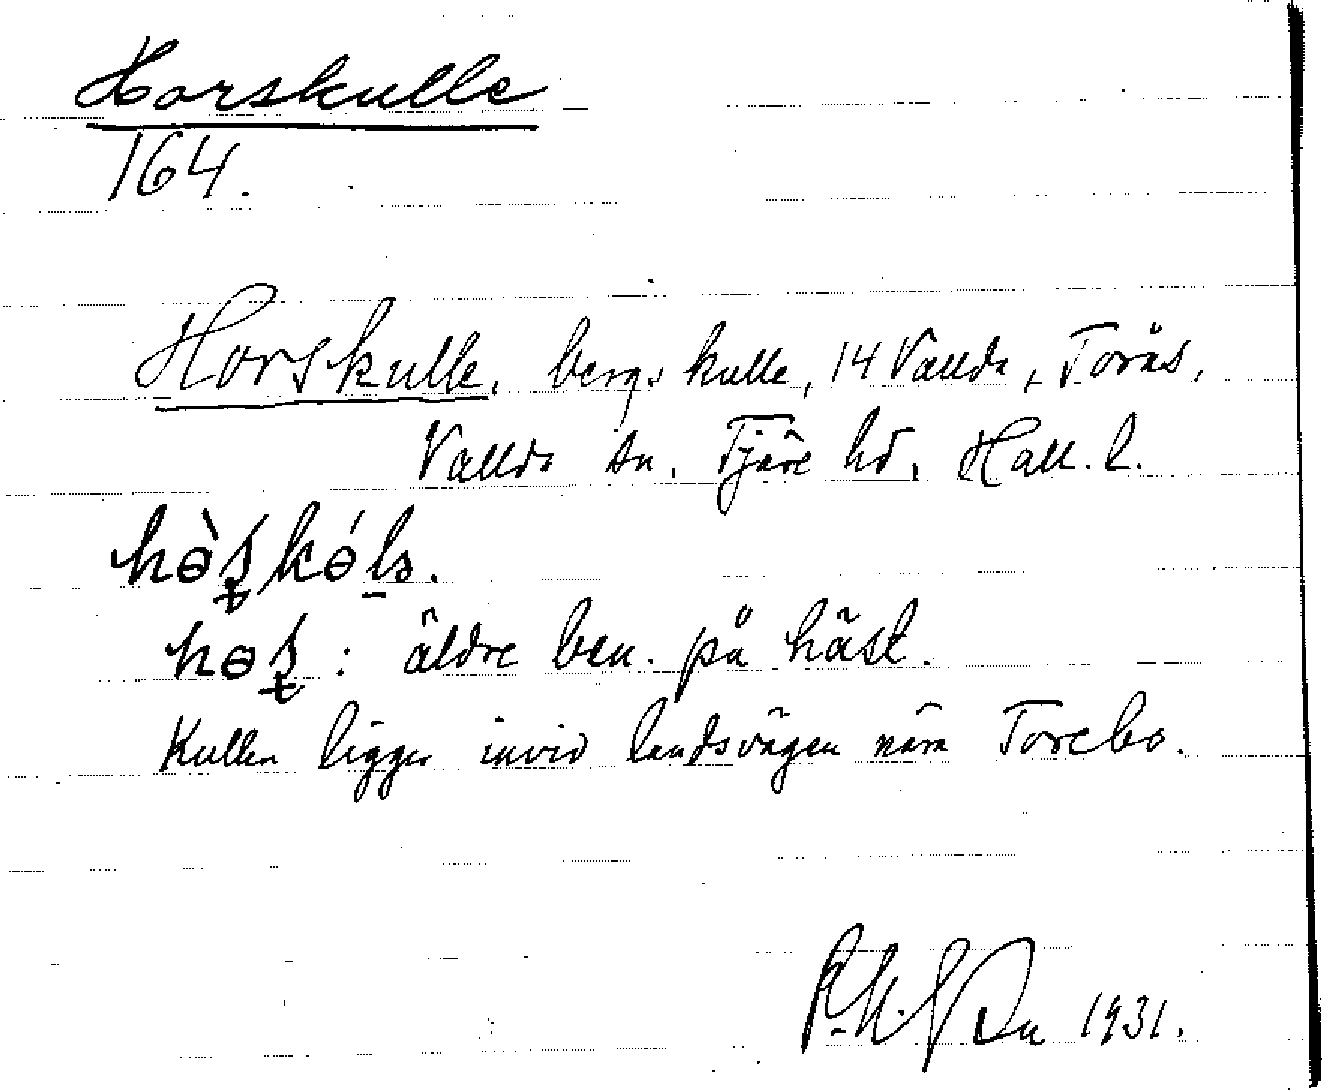 Horskulle
164.
Horskulle, bergskulle, 14 Vallda, Torås,
Vallda sn. Fjäre hd, Hall. l.
hə̀ʂkə́lə.
həʂ : äldre ben. på häst.
Kullen ligger invid landsvägen nära Torebo.
1931.